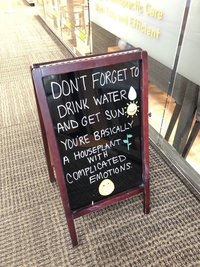 Chiropractic Care
and Efficient
DON'T FORGET TO
DRINK WATER
AND GET SUN:
YOU'RE BASICALLY
A HOUSEPLANT
WITH
COMPLICATED
EMOTIONS.